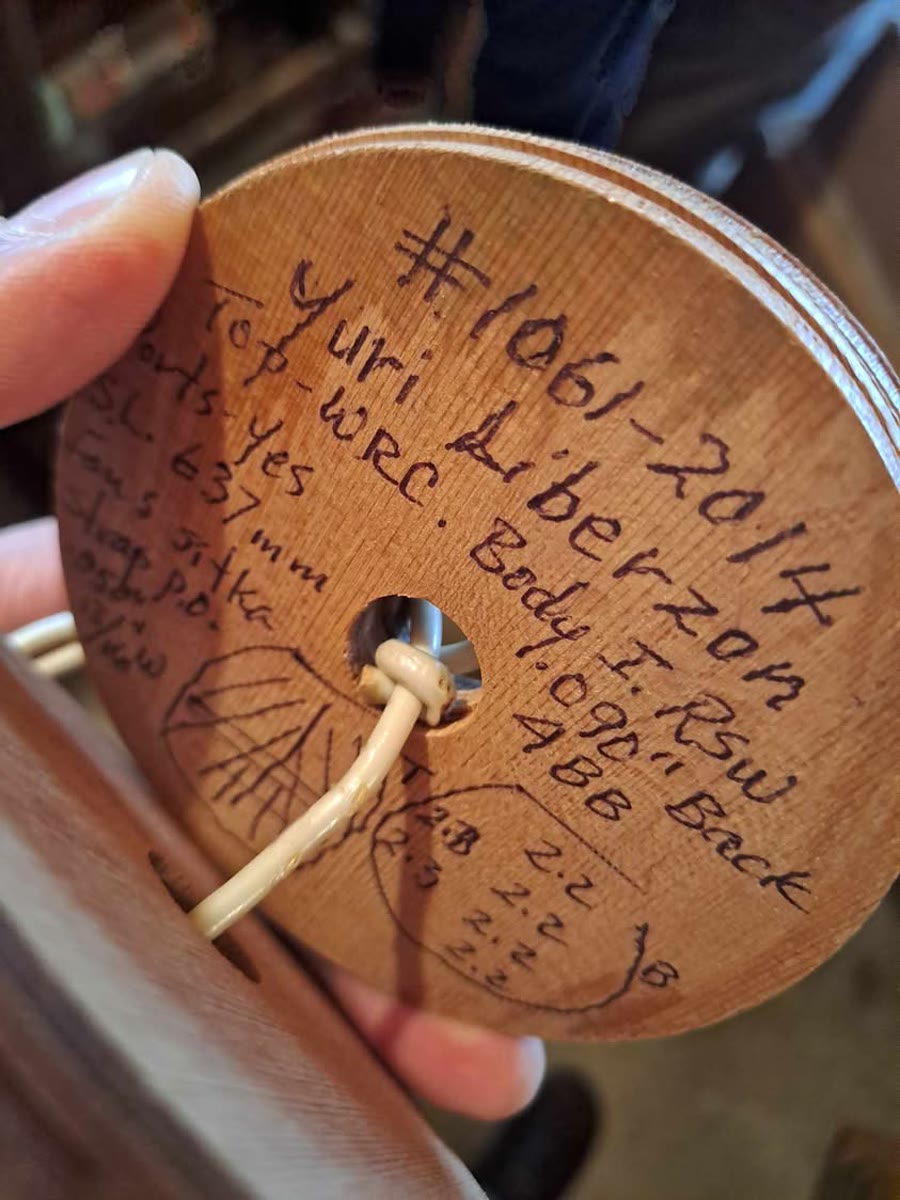 #1061-2014
Yuri Liberzon
Top-WRC. Body. I. RSW
Ports-yes .090" Back
S.L. 637 mm 4 BB
Fans Sitka
Strap P.O.
T B
2.B 2.2
2.5 2.2
2.2
2.2